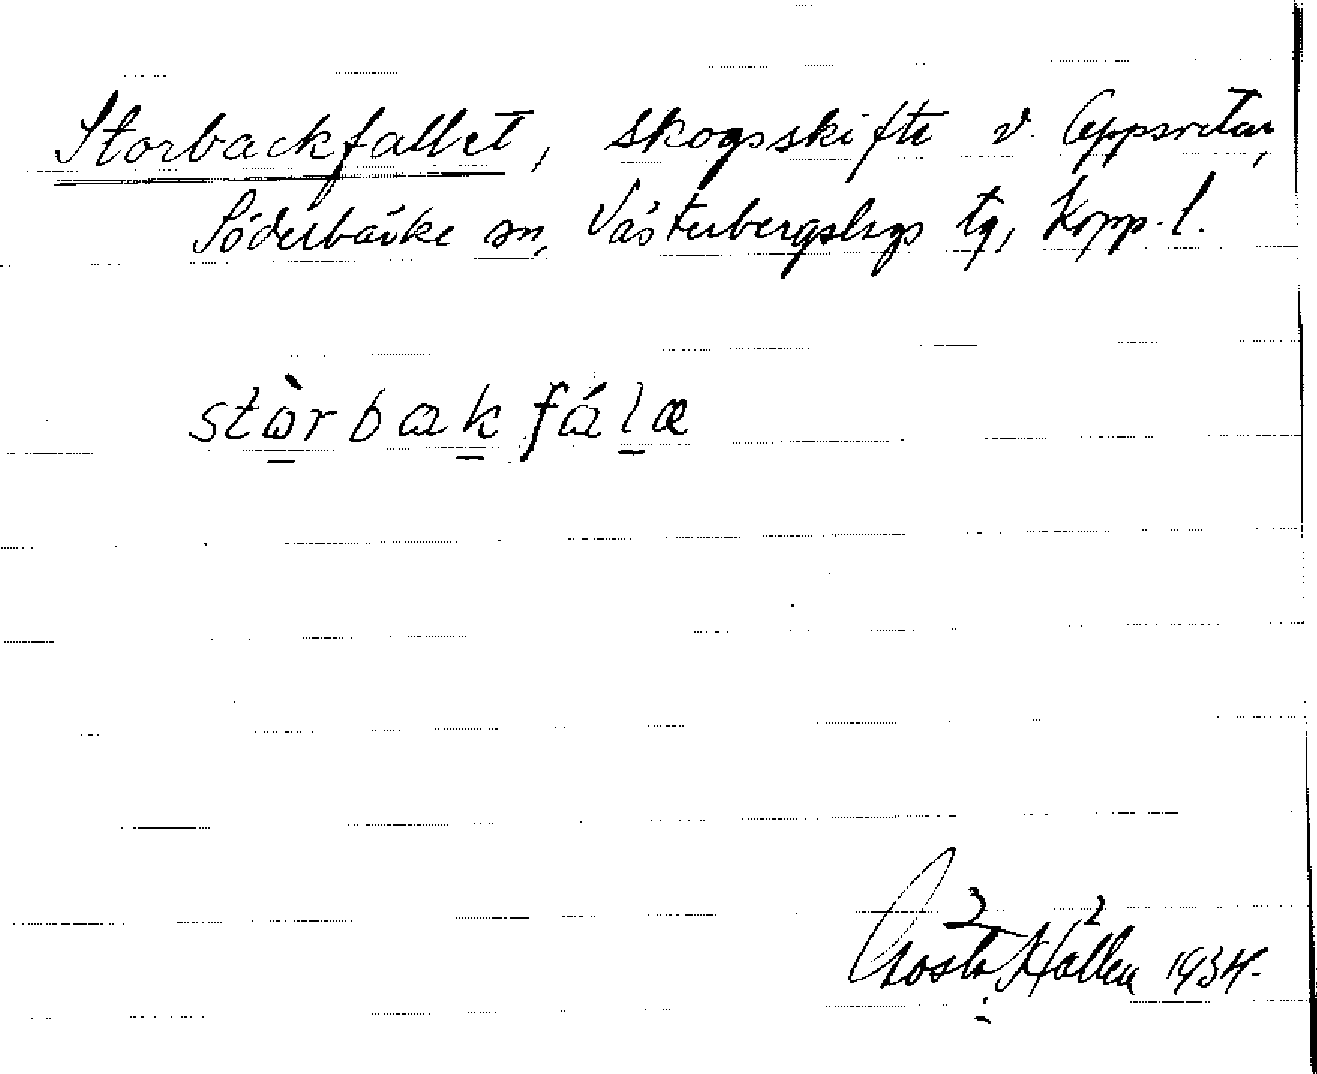 Storbackfallet, skogsskifte v. Uppsveten,
Söderbärke sn, Västerbergslags tg, Kopp. l.
stὼrbakfálæ
Gösta Hallén 1934.